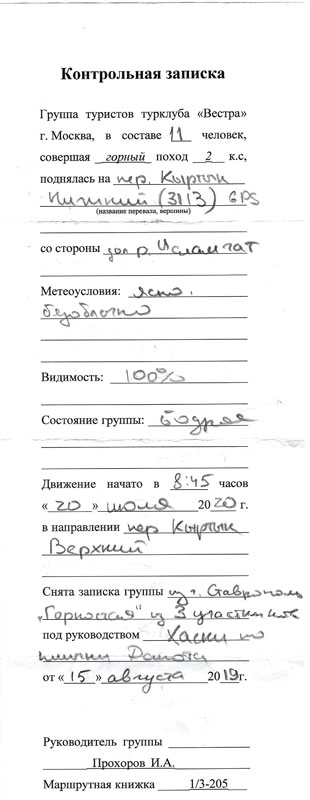 Контрольная записка
Группа туристов турклуба «Вестра»
г. Москва, в составе 11 человек,
совершая горный поход 2 к.с,
поднялась на пер. Кыртык
Нижний (3113) GPS
(название перевала, вершины)
со стороны дол р. Исламчат
Метеоусловия: Ясно.
безоблачно
Видимость: 100%
Состояние группы: бодрое
Движение начато в 8:45 часов
«20» июля 2020 г.
в направлении пер Кыртык
Верхний
Снята записка группы из г. Ставрополь
„Горностая" из 3 участников
под руководством Хаски по
кличке Дакота
от «15» августа 2019г.
Руководитель группы
Прохоров И.А.
Маршрутная книжка 1/3-205